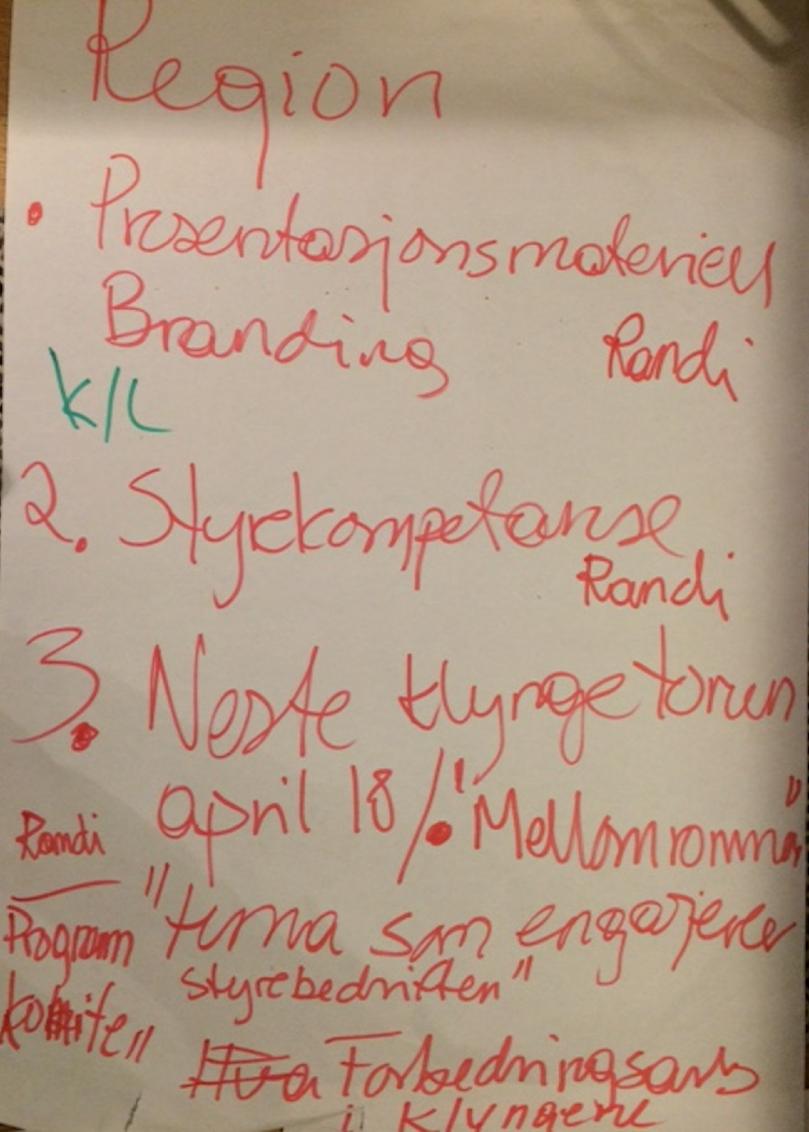 Region
• Presentasjonsmateriell
Branding Randi
K/L
2. Styrekompetanse
Randi
3. Neste klyngeforum
april 18/. "Mellomromma"
Randi
"tema som engasjerer
styrebedriften"
Program
komite"
Hva Forbedringsarb
i klyngene